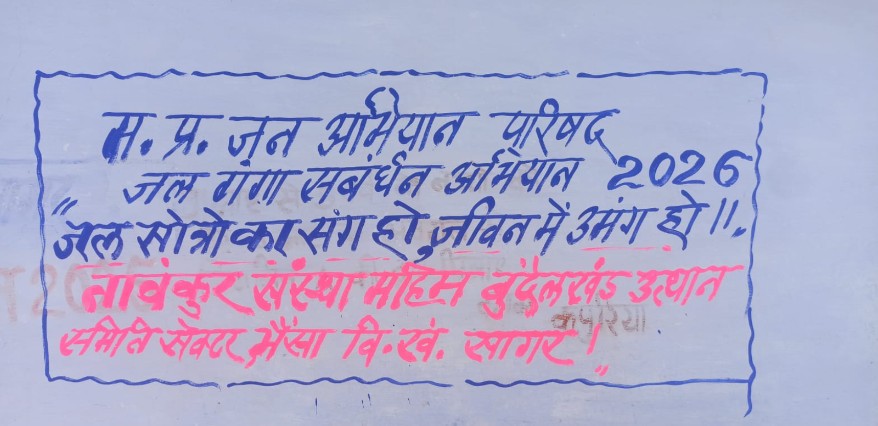 म. प्र. जन अभियान परिषद
जल गंगा संबर्धन अभियान 2026
"जल स्रोत्रो का संग हो, जीवन में उमंग हो।।.
नावंकुर संस्था महिम बुंदेलखंड उत्थान
समिति सेक्टर भैंसा वि.खं. सागर।"
कपुरिया